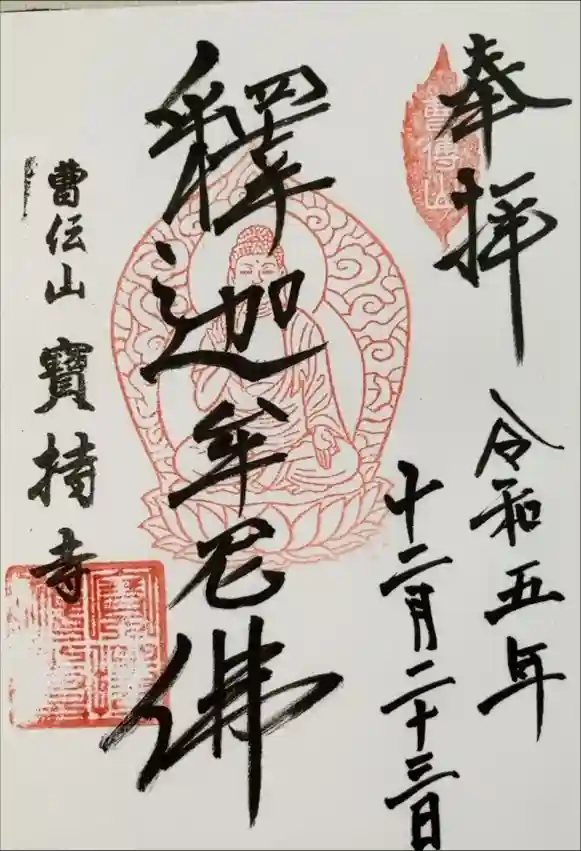 奉拝
曹傳山
令和五年
十二月二十三日
釋迦牟尼佛
曹伝山 寶持寺